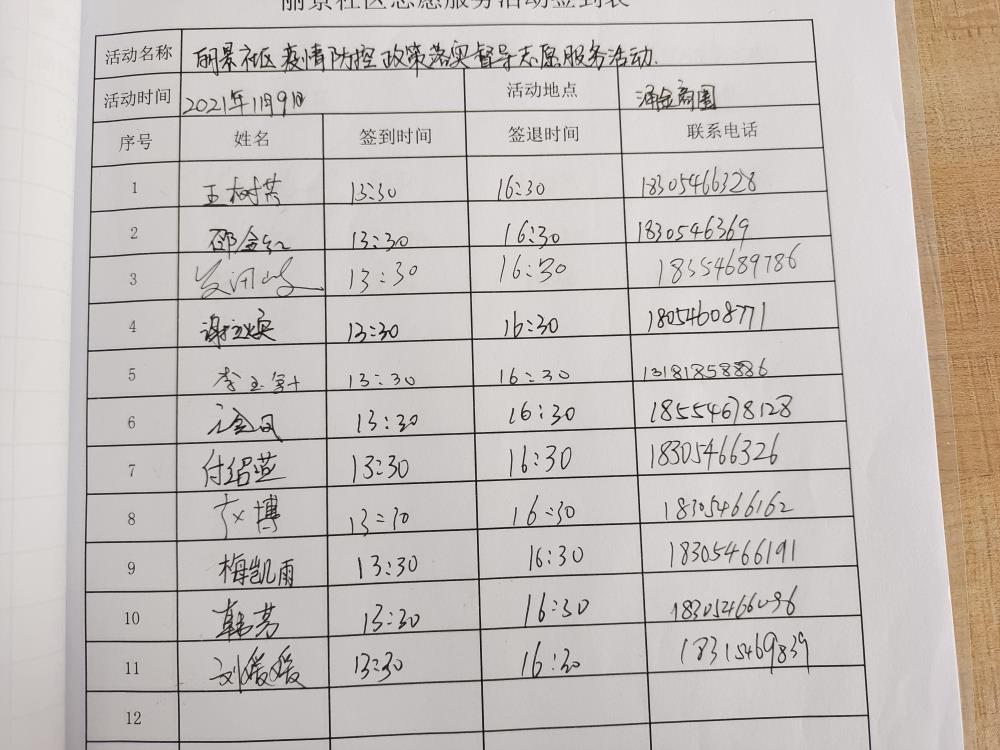 丽景社区志愿服务活动签到表
活动名称 丽景社区疫情防控政策落实督导志愿服务活动.
活动时间 2021年11月9日 活动地点 涌金商圈
序号 姓名 签到时间 签退时间 联系电话
1 王树芸 13:30 16:30 18305466328
2 邵金红 13:30 16:30 1830546369
3 13:30 16:30 18554689786
4 13:30 16:30 18054608771
5 13:30 16:30 13181858886
6 13:30 16:30 18554678128
7 付绍燕 13:30 16:30 18305466326
8 赵博 13:30 16:30 18305466162
9 梅凯雨 13:30 16:30 18305466191
10 韩芳 13:30 16:30 18305466096
11 刘媛媛 13:30 16:30 18315469839
12